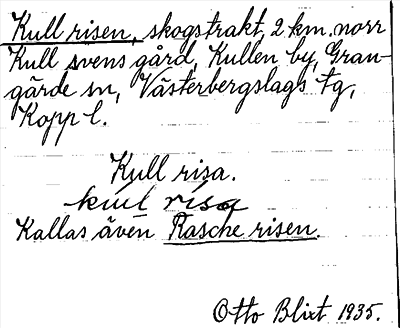 Kull risen, skogstrakt, 2 km. norr
Kull svens gård, Kullen by, Gran-
gärde sn, Västerbergslags tg,
Kopp l.
Kull risa.
kul risa
Kallas även Rasche risen.
Otto Blixt 1935.